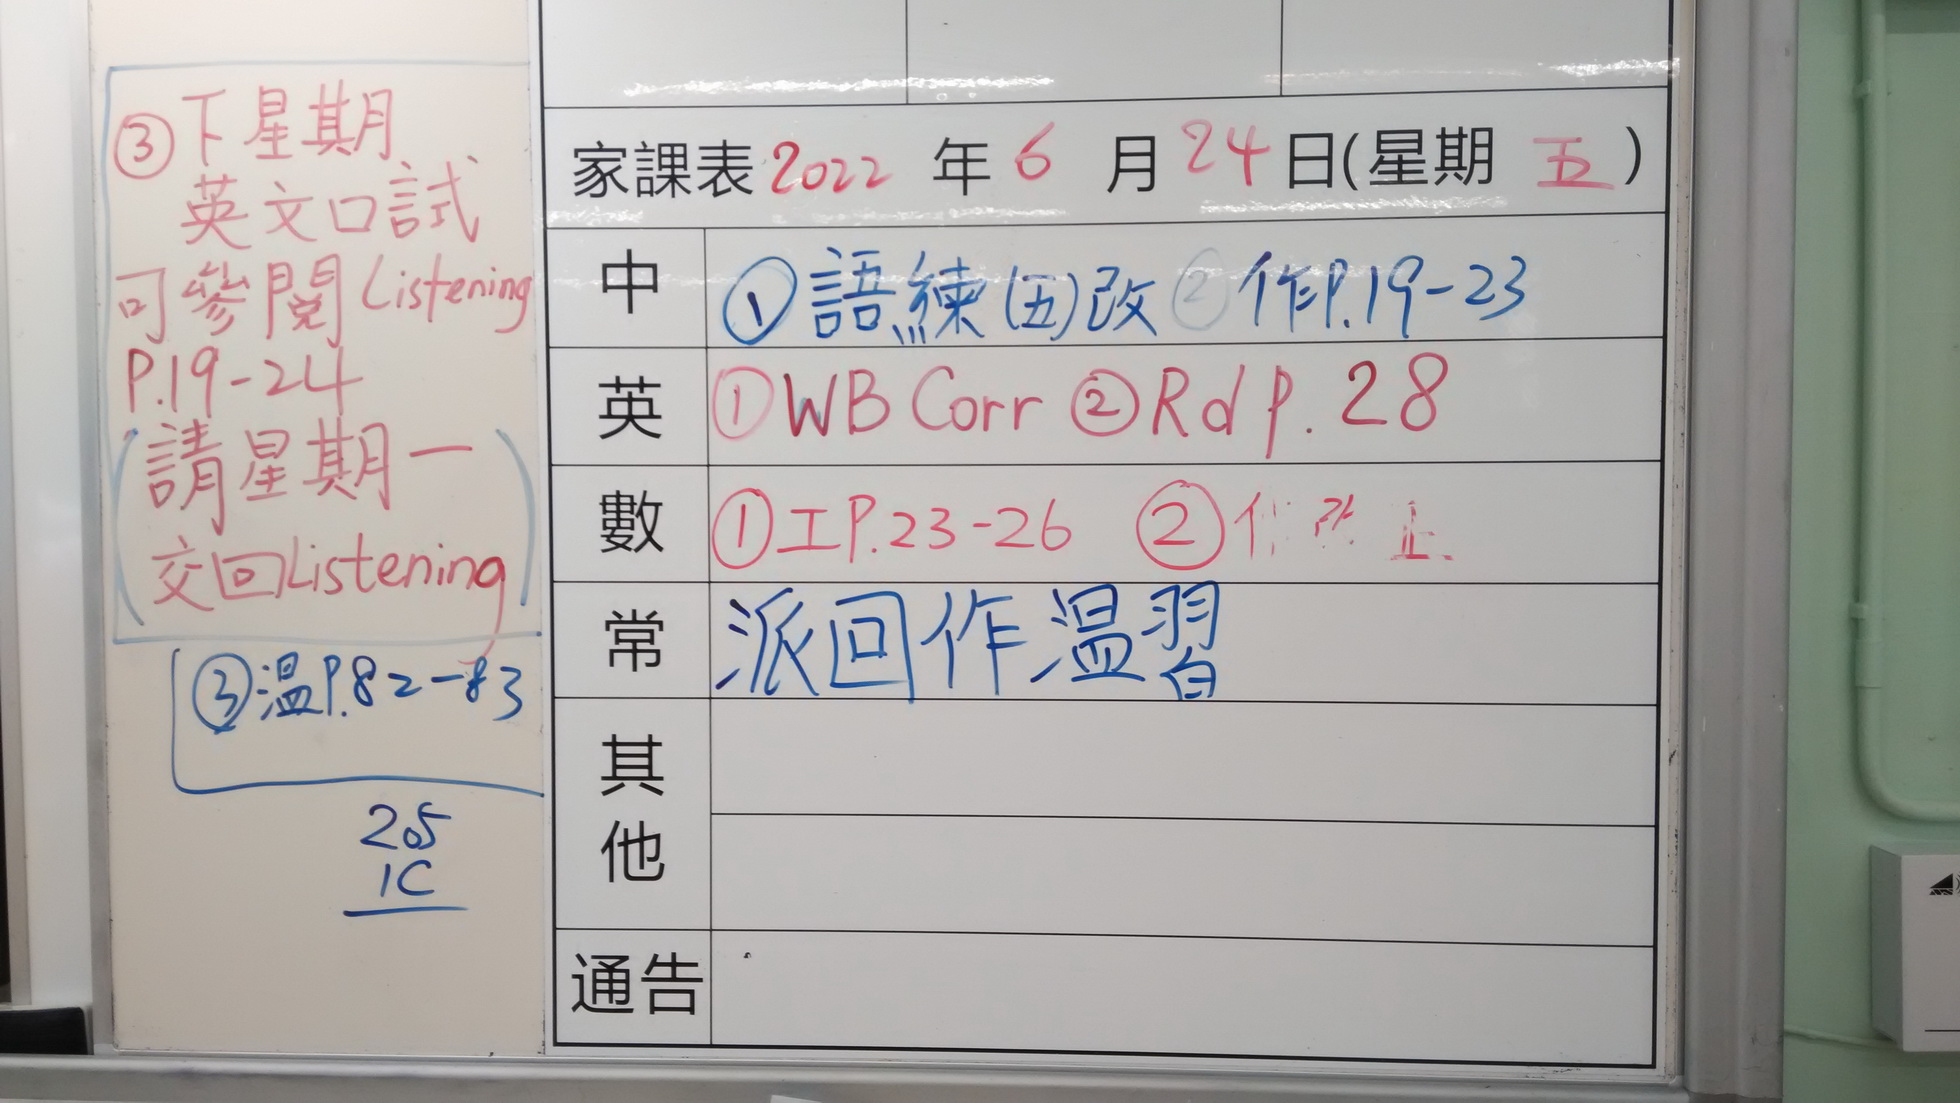 ③下星期
英文口試
可參閱Listening
P.19-24
(請星期一
交回Listening)
③溫P.82-83
205
1C
家課表2022年6月24日(星期五)
中 ①語練(五)改②作P.19-23
英 ①WB Corr ②Rd P.28
數 ①工P.23-26 ②
常 派回作溫習
其他
通告